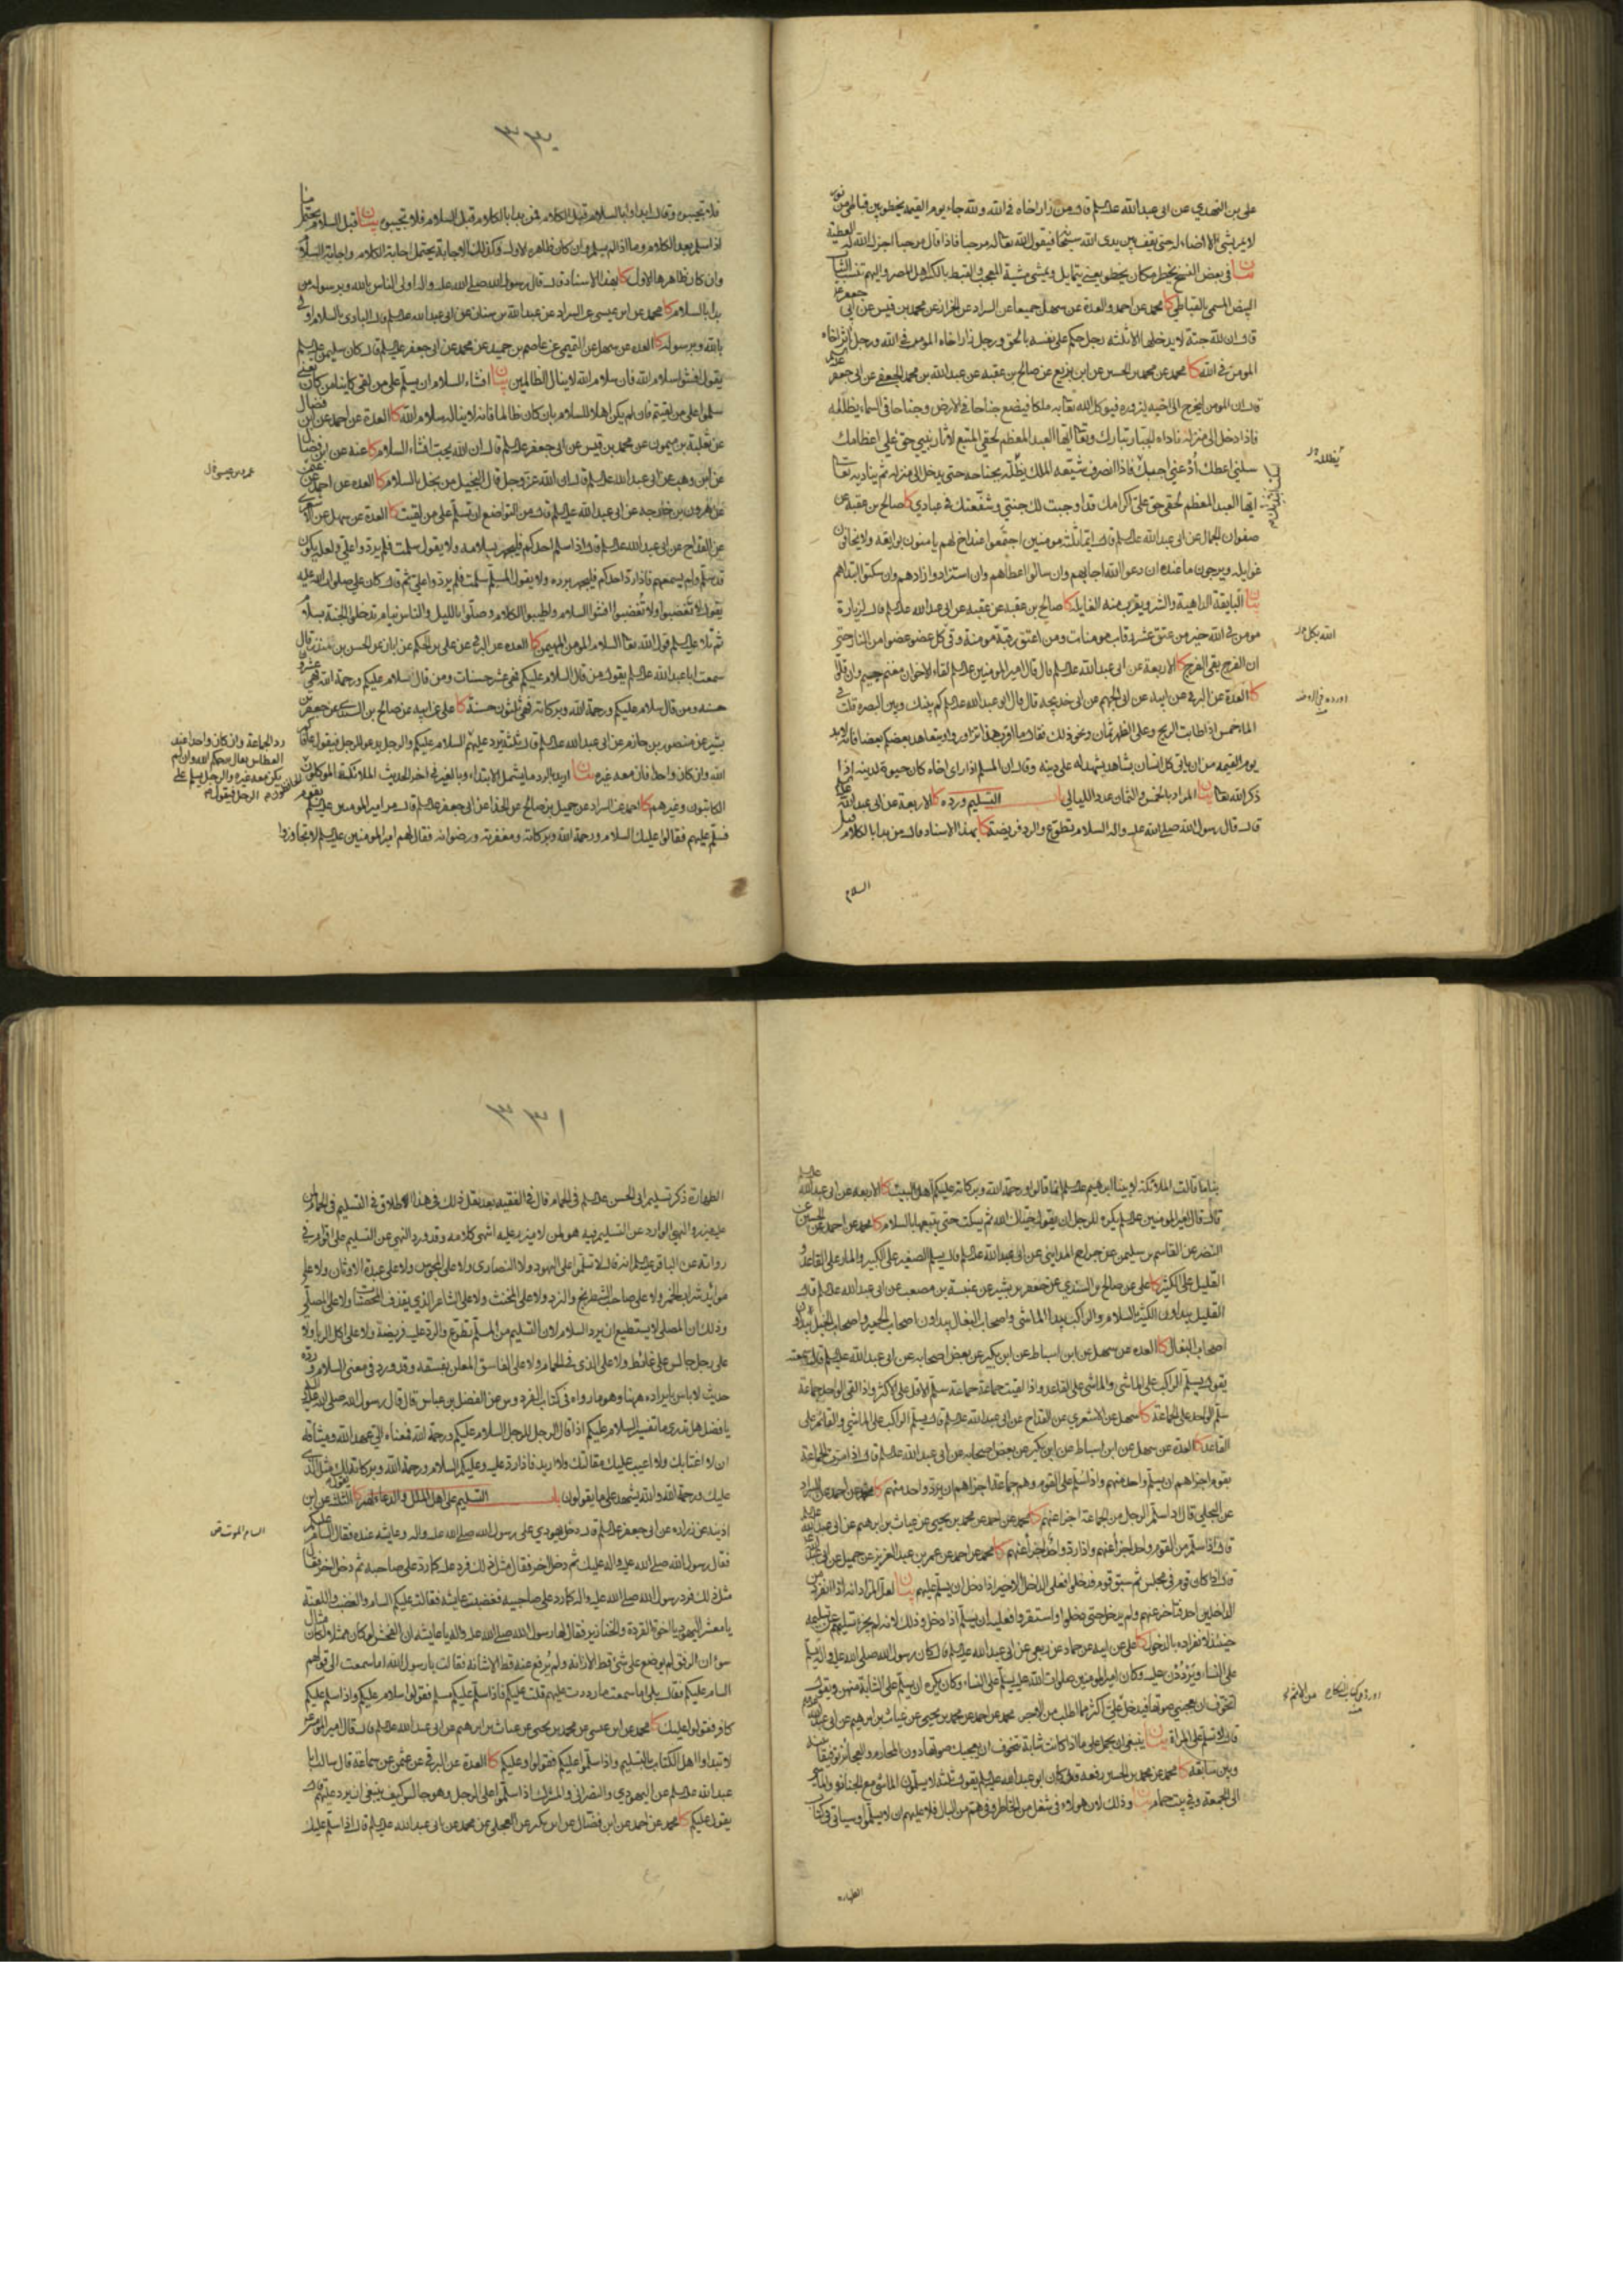 على بن النهدي عن ابى عبد الله عليه السلام قال من زار اخاه فى الله ولله جاء يوم القيمة يخطو بين قباطى من نور
لا يمر بشئ الا اضاء له حتى يقف بين يدى الله سبحانه فيقول الله تعالى له مرحبا فاذا قال مرحبا اجزل الله له العطية
بيان فى بعض النسخ يخطر مكان يخطو يعنى يتمايل ويمشى مشية المعجب والقبط بالكسر اهل المصر واليهم تنسب الثياب
البيض المسمى بالقباطى كا محمد عن احمد والعدة عن سهل جميعا عن السراد عن الخراز عن محمد بن قيس عن ابى جعفر ع
قال ان لله جنة لا يدخلها الا ثلثة رجل حكم على نفسه بالحق ورجل زار اخاه المومن فى الله ورجل اثر اخاه
المومن فى الله كا محمد عن محمد بن الحسين عن ابن بزيع عن صالح بن عقبه عن عبد الله بن محمد الجعفى عن ابى جعفر
قال ان المومن ليخرج الى اخيه يزوره فيوكل الله تعالى به ملكا فيضع جناحا فى الارض وجناحا فى السماء يظله
فاذا دخل الى منزله ناداه الجبار تبارك وتعالى ايها العبد المعظم لحقى المتبع لاثار نبيى حق على اعظامك
سلنى اعطك ادعنى اجبك فاذا انصرف شيعه الملك يظله بجناحه حتى يدخل الى منزله ثم يناديه تعالى
ايها العبد المعظم لحقى حق على اكرامك قد اوجبت لك جنتى وشفعتك فى عبادى كا صالح بن عقبة عن
صفوان الجمال عن ابى عبد الله عليه السلام قال ايما ثلثة مومنين اجتمعوا عند اخ لهم يامنون بوايقه ولا يخافون
غوايله ويرجون ما عنده ان دعوا الله اجابهم وان سالوا اعطاهم وان استزادوا زادهم وان سكتوا ابتداهم
بيان البايقة الداهية والشر ويقرب منه الغايلة كا صالح بن عقبه عن عقبه عن ابى عبد الله عليه السلام قال لزيارة
مومن فى الله خير من عتق عشر رقاب مومنات ومن اعتق رقبة مومنة وقى كل عضو عضوا من النار حتى
ان الفرج يقى الفرج كا الاربعة عن ابى عبد الله عليه السلام قال قال امير المومنين عليه السلام لقاء الاخوان مغنم جسيم وان قلوا
كا العدة عن البرقى عن ابيه عن ابى الجهم عن ابى خديجه قال قال لى ابو عبد الله عليه السلام كم بينك وبين البصره قلت فى
الماء خمس اذا طابت الريح وعلى الظهر ثمان ونحو ذلك فقال ما اقرب هذا تزاوروا ويتعاهد بعضكم بعضا فانه لا بد
يوم القيمه من ان ياتى كل انسان بشاهد يشهد له على دينه وقال ان المسلم اذا راى اخاه كان حيوة لدينه اذا
ذكر الله تعالى بيان المراد بالخمس والثمان عدد الليالى باب التسليم ورده كا الاربعة عن ابى عبد الله
قال قال رسول الله صلى الله عليه واله السلام تطوع والرد فريضة كا بهذا الاسناد قال من بدا بالكلام قبل
السلام
الله بكل
٣٣٠
فلا تجيبوه وقال ابداوا بالسلام قبل الكلام فمن بدا بالكلام قبل السلام فلا تجيبوه بيان قبل السلام يحتمل
اذا سلم بعد الكلام وما اذا لم يسلم وان كان ظاهره الاول وكذلك الاجابة يحتمل اجابة الكلام واجابة السلام
وان كان ظاهرها الاول كا بهذا الاسناد قال قال رسول الله صلى الله عليه واله اولى الناس بالله وبرسوله من
بدا بالسلام كا محمد عن ابن عيسى عن السراد عن عبد الله بن سنان عن ابى عبد الله عليه السلام قال البادى بالسلام اولى
بالله وبرسوله كا العدة عن سهل عن التميمى عن عاصم بن حميد عن محمد عن ابى جعفر عليه السلام قال كان سليمن عليه السلام
يقول افشوا سلام الله فان سلام الله لا ينال الظالمين بيان افشاء السلام ان يسلم على من لقى كاينا من كان يعنى
سلموا على من لقيتم فان لم يكن اهلا للسلام بان كان ظالما فانه لا يناله سلام الله كا العدة عن احمد عن ابن فضال
عن ثعلبة بن ميمون عن محمد بن قيس عن ابى جعفر عليه السلام قال ان الله يحب افشاء السلام كا عنه عن ابن فضال
عن ابن وهب عن ابى عبد الله عليه السلام قال ان الله عز وجل قال البخيل من يبخل بالسلام كا العده عن احمد عن
عن هرون بن خارجه عن ابى عبد الله عليه السلام قال من التواضع ان تسلم على من لقيت كا العدة عن سهل عن الاشعرى
عن القداح عن ابى عبد الله عليه السلام قال اذا سلم احدكم فليجهر بسلامه ولا يقول سلمت فلم يردوا على ولعله يكون
قد سلم ولم يسمعهم فاذا رد احدكم فليجهر برده ولا يقول المسلم سلمت فلم يردوا على ثم قال كان على صلوات الله عليه
يقول لا تغضبوا ولا تغضبوا افشوا السلام واطيبوا الكلام وصلوا بالليل والناس نيام تدخلوا الجنة بسلام
ثم تلا عليه السلام قول الله تعالى السلام المومن المهيمن كا العده عن البرقى عن على بن الحكم عن ابان عن الحسن بن منذر قال
سمعت ابا عبد الله عليه السلام يقول من قال السلام عليكم فهى عشر حسنات ومن قال سلام عليكم ورحمة الله فهى عشرون
حسنه ومن قال سلام عليكم ورحمة الله وبركاته فهى ثلثون حسنة كا على عن ابيه عن صالح بن السندى عن جعفر بن
بشير عن منصور بن حازم عن ابى عبد الله عليه السلام قال ثلثة يرد عليهم السلام عليكم والرجل يدعو للرجل فيقول عافاكم
الله وان كان واحدا فان معه غيره بيان اريد بالرد ما يشمل الابتداء وبالغير فى اخر الحديث الملائكة الموكلون
الكاتبون وغيرهم كا احمد عن السراد عن جميل بن صالح عن الحذا عن ابى جعفر عليه السلام قال مر امير المومنين عليه السلام بقوم
فسلم عليهم فقالوا عليك السلام ورحمة الله وبركاته ومغفرته ورضوانه فقال لهم امير المومنين عليه السلام لا تجاوزوا
رد الجماعة وان كان واحدا عند
العطاس يقال يرحكم الله وان لم
يكن معه غيره والرجل يسلم على
بنا ما قالت الملائكة لابينا ابرهيم عليه السلام انما قالوا ورحمة الله وبركاته عليكم اهل البيت كا الاربعه عن ابى عبد الله عليه السلام
قال قال امير المومنين عليه السلام يكره للرجل ان يقول حياك الله ثم يسكت حتى يتبعها بالسلام كا محمد عن احمد عن الحسين عن
النضر عن القاسم بن سليمن عن جراح المداينى عن ابى عبد الله عليه السلام قال يسلم الصغير على الكبير والمار على القاعد و
القليل على الكثير كا على عن صالح بن السندى عن جعفر بن بشير عن عنبسة بن مصعب عن ابى عبد الله عليه السلام قال
القليل يبداون الكثير بالسلام والراكب يبدا الماشى واصحاب البغال يبداون اصحاب الحمير واصحاب الخيل يبداون
اصحاب البغال كا العده عن سهل عن ابن اسباط عن ابن بكير عن بعض اصحابه عن ابى عبد الله عليه السلام قال سمعته
يقول يسلم الراكب على الماشى والماشى على القاعد واذا لقيت جماعة جماعة سلم الاقل على الاكثر واذا لقى الواحد جماعة
سلم الواحد على الجماعة كا سهل عن الاشعرى عن القداح عن ابى عبد الله عليه السلام قال يسلم الراكب على الماشى والقائم على
القاعد كا العدة عن سهل عن ابن اسباط عن ابن بكير عن بعض اصحابه عن ابى عبد الله عليه السلام قال اذا مرت الجماعة
بقوم اجزاهم ان يسلم واحد منهم واذا سلم على القوم وهم جماعة اجزاهم ان يرد واحد منهم كا محمد عن احمد عن السراد
عن البجلى قال اذا سلم الرجل من الجماعة اجزا عنهم كا محمد عن احمد عن محمد بن يحيى عن غياث بن ابرهيم عن ابى عبد الله
قال اذا سلم من القوم واحد اجزا عنهم واذا رد واحد اجزا عنهم كا محمد عن احمد عن عمر بن عبد العزيز عن جميل عن ابى عبد الله
قال اذا كان قوم فى مجلس ثم سبق قوم فدخلوا فعلى الداخل الاخير اذا دخل ان يسلم عليهم بيان لعل المراد انه اذا انفرد من
الداخلين احد فتاخر عنهم ولم يدخل حتى دخلوا واستقروا فعليه ان يسلم اذا دخل وذلك لانه لم يجزه تسليمهم عن تسليمه
حينئذ لانفراده بالدخول كا على عن ابيه عن حماد عن ربعى عن ابى عبد الله عليه السلام قال كان رسول الله صلى الله عليه واله يسلم
على النساء ويرددن عليه وكان امير المومنين صلوات الله عليه يسلم على النساء وكان يكره ان يسلم على الشابة منهن ويقول
اتخوف ان يعجبنى صوتها فيدخل على اكثر مما اطلب من الاجر محمد عن احمد عن محمد بن يحيى عن غياث بن ابرهيم عن ابى عبد الله
قال لا تسلم على المراة بيان ينبغى ان يحمل على ما اذا كانت شابة تتخوف ان يعجبك صوتها دون المحارم والعجائز توفيقا بينه
وبين سابقه كا محمد عن محمد بن الحسين رفعه قال كان ابو عبد الله عليه السلام يقول ثلثة لا يسلمون الماشى مع الجنازة والماشى
الى الجمعة وفى بيت حمام بيان وذلك لان هولاء فى شغل من الخاطر وفى هم من البال فلا عليهم ان لا يسلموا وسياتى فى كتاب
الطهاره
٣٣١
الطهارة ذكر تسليم ابى الحسن عليه السلام فى الحمام قال فى الفقيه بعد نقل ذلك فى هذا اطلاق فى التسليم فى الحمام لمن
عليه مئزر والنهى الوارد عن التسليم فيه هو لمن لا مئزر عليه انتهى كلامه وقد ورد النهى عن التسليم على اقوام فى
رواية عن الباقر عليه السلام انه قال لا تسلموا على اليهود ولا النصارى ولا على المجوس ولا على عبدة الاوثان ولا على
موائد شراب الخمر ولا على صاحب الشطرنج والنرد ولا على المخنث ولا على الشاعر الذى يقذف المحصنات ولا على المصلى
وذلك ان المصلى لا يستطيع ان يرد السلام لان التسليم من المسلم تطوع والرد عليه فريضة ولا على اكل الربا ولا
على رجل جالس على غائط ولا على الذى فى الحمام ولا على الفاسق المعلن بفسقه وقد ورد فى معنى السلام ورده
حديث لا باس بايراده ههنا وهو ما رواه فى كتاب الفردوس عن الفضل بن عباس قال قال رسول الله صلى الله عليه واله
يا فضل هل تدرى ما تفسير السلام عليكم اذا قال الرجل للرجل السلام عليكم ورحمة الله فمعناه الى عهد الله وميثاقه
ان لا اغتابك ولا اعيب عليك مقالتك ولا اريد فاذا رد عليه وعليكم السلام ورحمة الله وبركاته يقول لك مثل الذى
عليك ورحمة الله والله يشهد على ما يقولون باب التسليم على اهل الملل والدعاء لهم كا الثلثة عن ابن
اذينه عن زراره عن ابى جعفر عليه السلام قال دخل يهودى على رسول الله صلى الله عليه واله وعايشه عنده فقال السام عليكم
فقال رسول الله صلى الله عليه واله عليك ثم دخل اخر فقال مثل ذلك فرد عليه كما رد على صاحبه ثم دخل اخر فقال
مثل ذلك فرد رسول الله صلى الله عليه واله كما رد على صاحبيه فغضبت عايشه فقالت عليكم السام والغضب واللعنة
يا معشر اليهود يا اخوة القردة والخنازير فقال لها رسول الله صلى الله عليه واله يا عايشه ان الفحش لو كان ممثلا لكان مثال
سوء ان الرفق لم يوضع على شئ قط الا زانه ولم يرفع عنه قط الا شانه فقالت يا رسول الله اما سمعت الى قولهم
السام عليكم فقال بلى اما سمعت ما رددت عليهم قلت عليكم فاذا سلم عليكم مسلم فقولوا سلام عليكم واذا سلم عليكم
كافر فقولوا عليك كا محمد عن ابن عيسى عن محمد بن يحيى عن غياث بن ابرهيم عن ابى عبد الله عليه السلام قال قال امير المومنين
لا تبداوا اهل الكتاب بالتسليم واذا سلموا عليكم فقولوا وعليكم كا العدة عن البرقى عن عثمن عن سماعة قال سالت ابا
عبد الله عليه السلام عن اليهودى والنصرانى والمشرك اذا سلموا على الرجل وهو جالس كيف ينبغى ان يرد عليهم قال
يقول عليكم كا محمد عن احمد عن ابن فضال عن ابن بكير عن العجلى عن محمد عن ابى عبد الله عليه السلام قال اذا سلم عليك